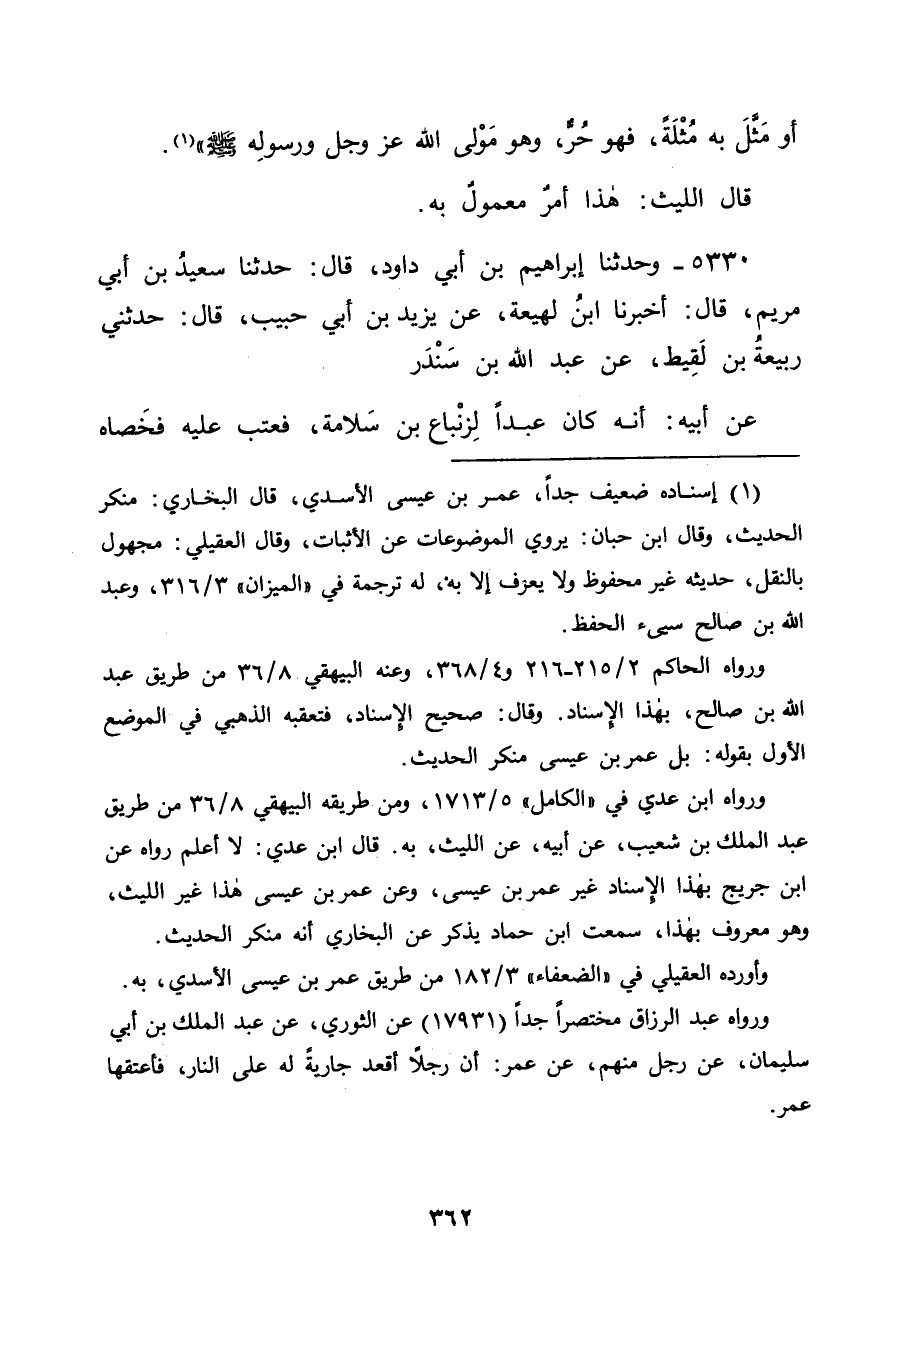 أو مَثَّلَ به مُثْلَةً، فهو حُرٌّ، وهو مَوْلى الله عز وجل ورسولِه ﷺ»(١).
قال الليث: هٰذا أمرٌ معمولٌ به.
٥٣٣٠ ـ وحدثنا إبراهيم بن أبي داود، قال: حدثنا سعيدُ بن أبي
مريم، قال: أخبرنا ابنُ لهيعة، عن يزيد بن أبي حبيب، قال: حدثني
ربيعةُ بن لَقِيط، عن عبد الله بن سَنْدَر
عن أبيه: أنـه كان عبـداً لِزِنْباع بن سَلامة، فعتب عليه فخَصاه
(١) إسنـاده ضعيف جداً، عمـر بن عيسى الأسـدي، قال البخـاري: منكر
الحديث، وقال ابن حبان: يروي الموضوعات عن الأثبات، وقال العقيلي: مجهول
بالنقل، حديثه غير محفوظ ولا يعرف إلا به، له ترجمة في «الميزان» ٣١٦/٣، وعبد
الله بن صالح سيىء الحفظ.
ورواه الحاكم ٢١٥/٢-٢١٦ و٣٦٨/٤، وعنه البيهقي ٣٦/٨ من طريق عبد
الله بن صالح، بهٰذا الإسناد. وقال: صحيح الإسناد، فتعقبه الذهبي في الموضع
الأول بقوله: بل عمر بن عيسى منكر الحديث.
ورواه ابن عدي في «الكامل» ١٧١٣/٥، ومن طريقه البيهقي ٣٦/٨ من طريق
عبد الملك بن شعيب، عن أبيه، عن الليث، به. قال ابن عدي: لا أعلم رواه عن
ابن جريج بهٰذا الإسناد غير عمر بن عيسى، وعن عمر بن عيسى هٰذا غير الليث،
وهو معروف بهٰذا، سمعت ابن حماد يذكر عن البخاري أنه منكر الحديث.
وأورده العقيلي في «الضعفاء» ١٨٢/٣ من طريق عمر بن عيسى الأسدي، به.
ورواه عبد الرزاق مختصراً جداً (١٧٩٣١) عن الثوري، عن عبد الملك بن أبي
سليمان، عن رجل منهم، عن عمر: أن رجلًا أقعد جاريةً له على النار، فأعتقها
عمر.
٣٦٢